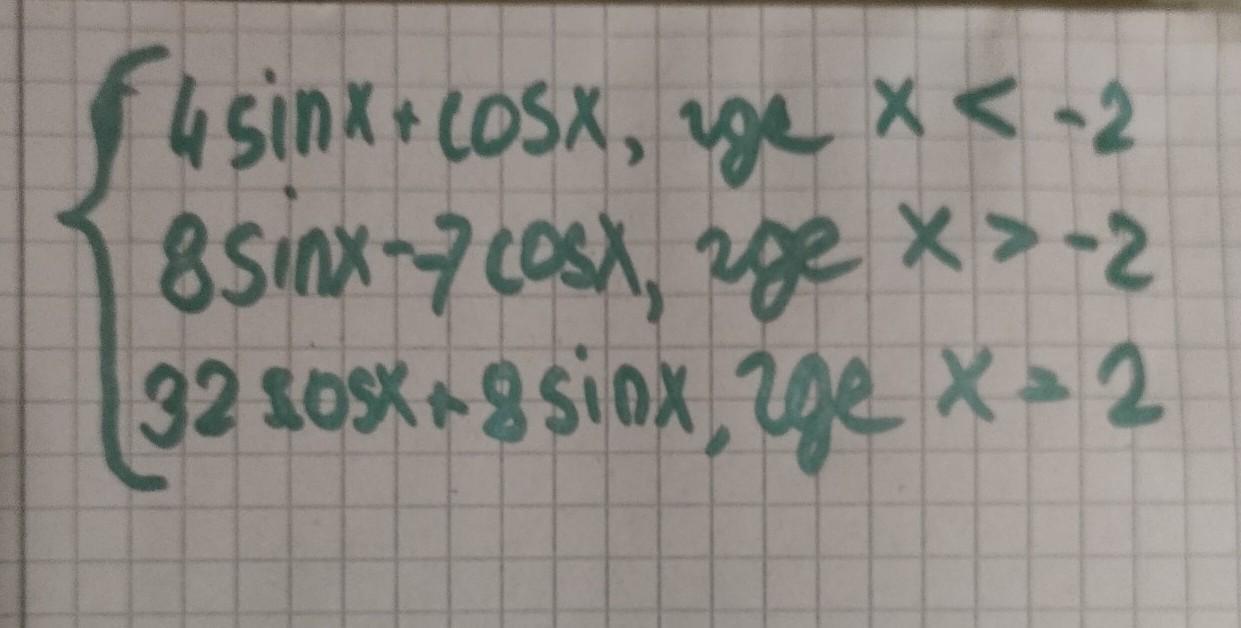 4 sinx + cosx, где x < -2
8 sinx - 7 cosx, где x > -2
32 cosx + 8 sinx, где x = 2